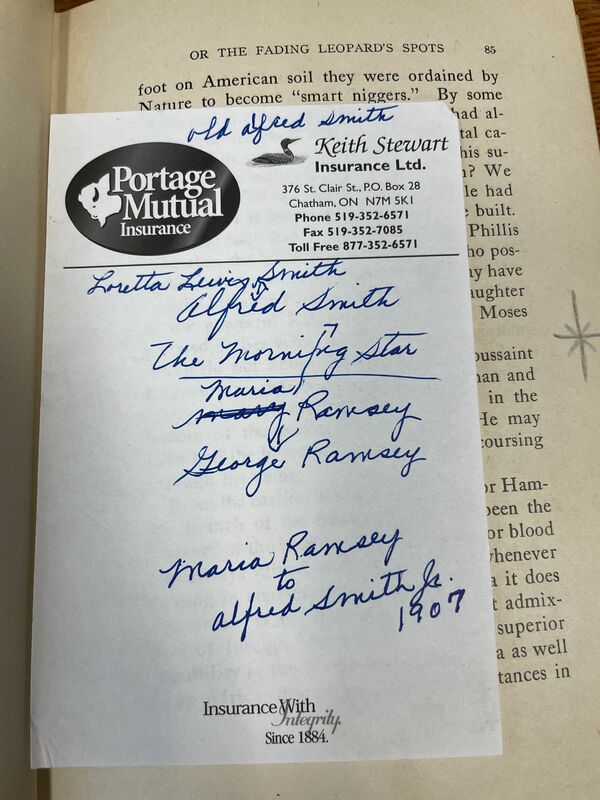 OR THE FADING LEOPARD'S SPOTS 85
foot on American soil they were ordained by
Nature to become "smart niggers." By some
had al-
tal ca-
his su-
? We
le had
e built.
Phillis
ho pos-
ay have
aughter
Moses
oussaint
nan and
in the
He may
coursing
or Ham-
been the
or blood
whenever
it does
t admix-
superior
a as well
tances in
old alfred Smith
Portage
Mutual
Insurance
Keith Stewart
Insurance Ltd.
376 St. Clair St., P.O. Box 28
Chatham, ON N7M 5K1
Phone 519-352-6571
Fax 519-352-7085
Toll Free 877-352-6571
Loretta Lewis Smith
Alfred Smith
The Morning Star
Maria
mary Ramsey
George Ramsey
Maria Ramsey
to
alfred Smith Jr.
1907
Insurance With
Integrity.
Since 1884.